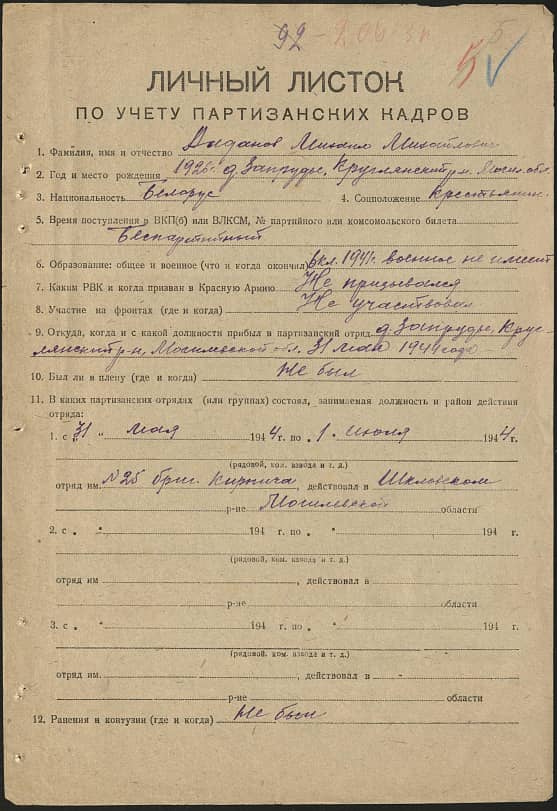 92
5
ЛИЧНЫЙ ЛИСТОК
ПО УЧЕТУ ПАРТИЗАНСКИХ КАДРОВ
1. Фамилия, имя и отчество Михаил Михайлович
2. Год и место рождения 1926 г. д. Запруды, Круглянский р-н. Мог. обл.
3. Национальность Белорус 4. Соцположение крестьянин.
5. Время поступления в ВКП(б) или ВЛКСМ, № партийного или комсомольского билета
Беспартийный
6. Образование: общее и военное (что и когда окончил) 6 кл. 1941 г. военное не имеет
7. Каким РВК и когда призван в Красную Армию Не призывался
8. Участие на фронтах (где и когда) Не участвовал
9. Откуда, когда и с какой должности прибыл в партизанский отряд д. Запруды, Круг-
лянский р-н, Могилевской обл. 31 мая 1944 года
10. Был ли в плену (где и когда) Не был
11. В каких партизанских отрядах (или группах) состоял, занимаемая должность и район действия
отряда:
1. с „31 " мая 1944 г. по „1. июля 1944 г.
(рядовой, ком. взвода и т. д.)
отряд им. №25 бриг. Кирпича, действовал в Шкловском
р-не Могилевской области
2. с „ " 194 г. по „ " 194 г.
(рядовой, ком. взвода и т. д.)
отряд им , действовал в
р-не области
3. с „ " 194 г. по „ " 194 г.
(рядовой, ком. взвода и т. д.)
отряд им. , действовал в
р-не области
12. Ранения и контузии (где и когда) Не был